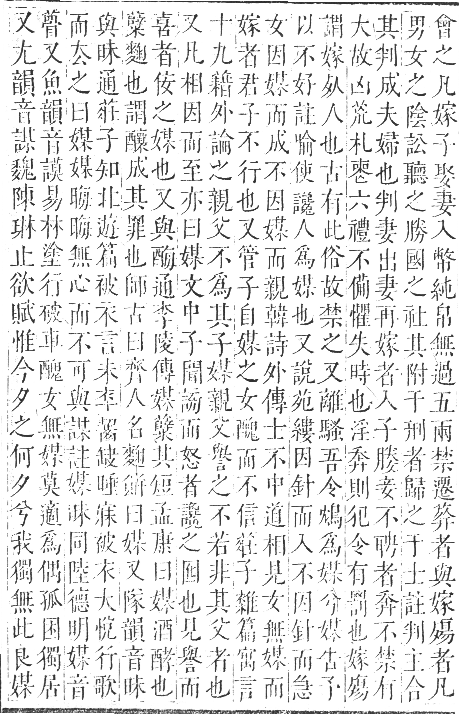 會之凡嫁子娶妻入幣純帛無過五兩禁遷葬者與嫁殤者凡
男女之陰訟聽之勝國之社其附于刑者歸之于士註判主合
其判成夫婦也判妻出妻再嫁者入子媵妾不聘者奔不禁有
大故凶荒札喪六禮不備懼失時也淫奔則犯令有罰也嫁殤
謂嫁奴人也古有此俗故禁之又離騷吾令鴆爲媒兮媒告予
以不好註喻使讒人爲媒也又說苑縷因針而入不因針而急
女因媒而成不因媒而親韓詩外傳士不中道相見女無媒而
嫁者君子不行也又管子自媒之女醜而不信莊子雜篇寓言
十九籍外論之親父不爲其子媒親父譽之不若非其父者也
又凡相因而至亦曰媒文中子聞謗而怒者讒之囮也見譽而
喜者佞之媒也又與酶通李陵傳媒糵其短孟康曰媒酒酵也
糵麴也謂釀成其罪也師古曰齊人名麴餅曰媒又隊韻音昧
與昧通莊子知北遊篇被衣言未卒齧缺睡寐被衣大悅行歌
而去之曰媒媒晦晦無心而不可與謀註媒昧同陸德明媒音
瞢又魚韻音謨易林塗行破車醜女無媒莫適爲偶孤困獨居
又尤韻音謀魏陳琳止欲賦惟今夕之何夕兮我獨無此良媒